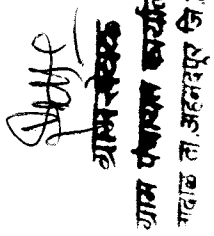 ग्रामसेवक
ग्राम पंचायत कार्या
ता.अहमदपूर जि.